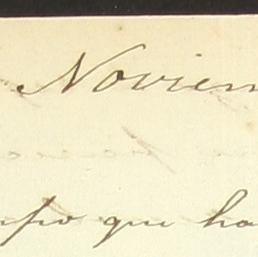 Noviem
mpo que ha